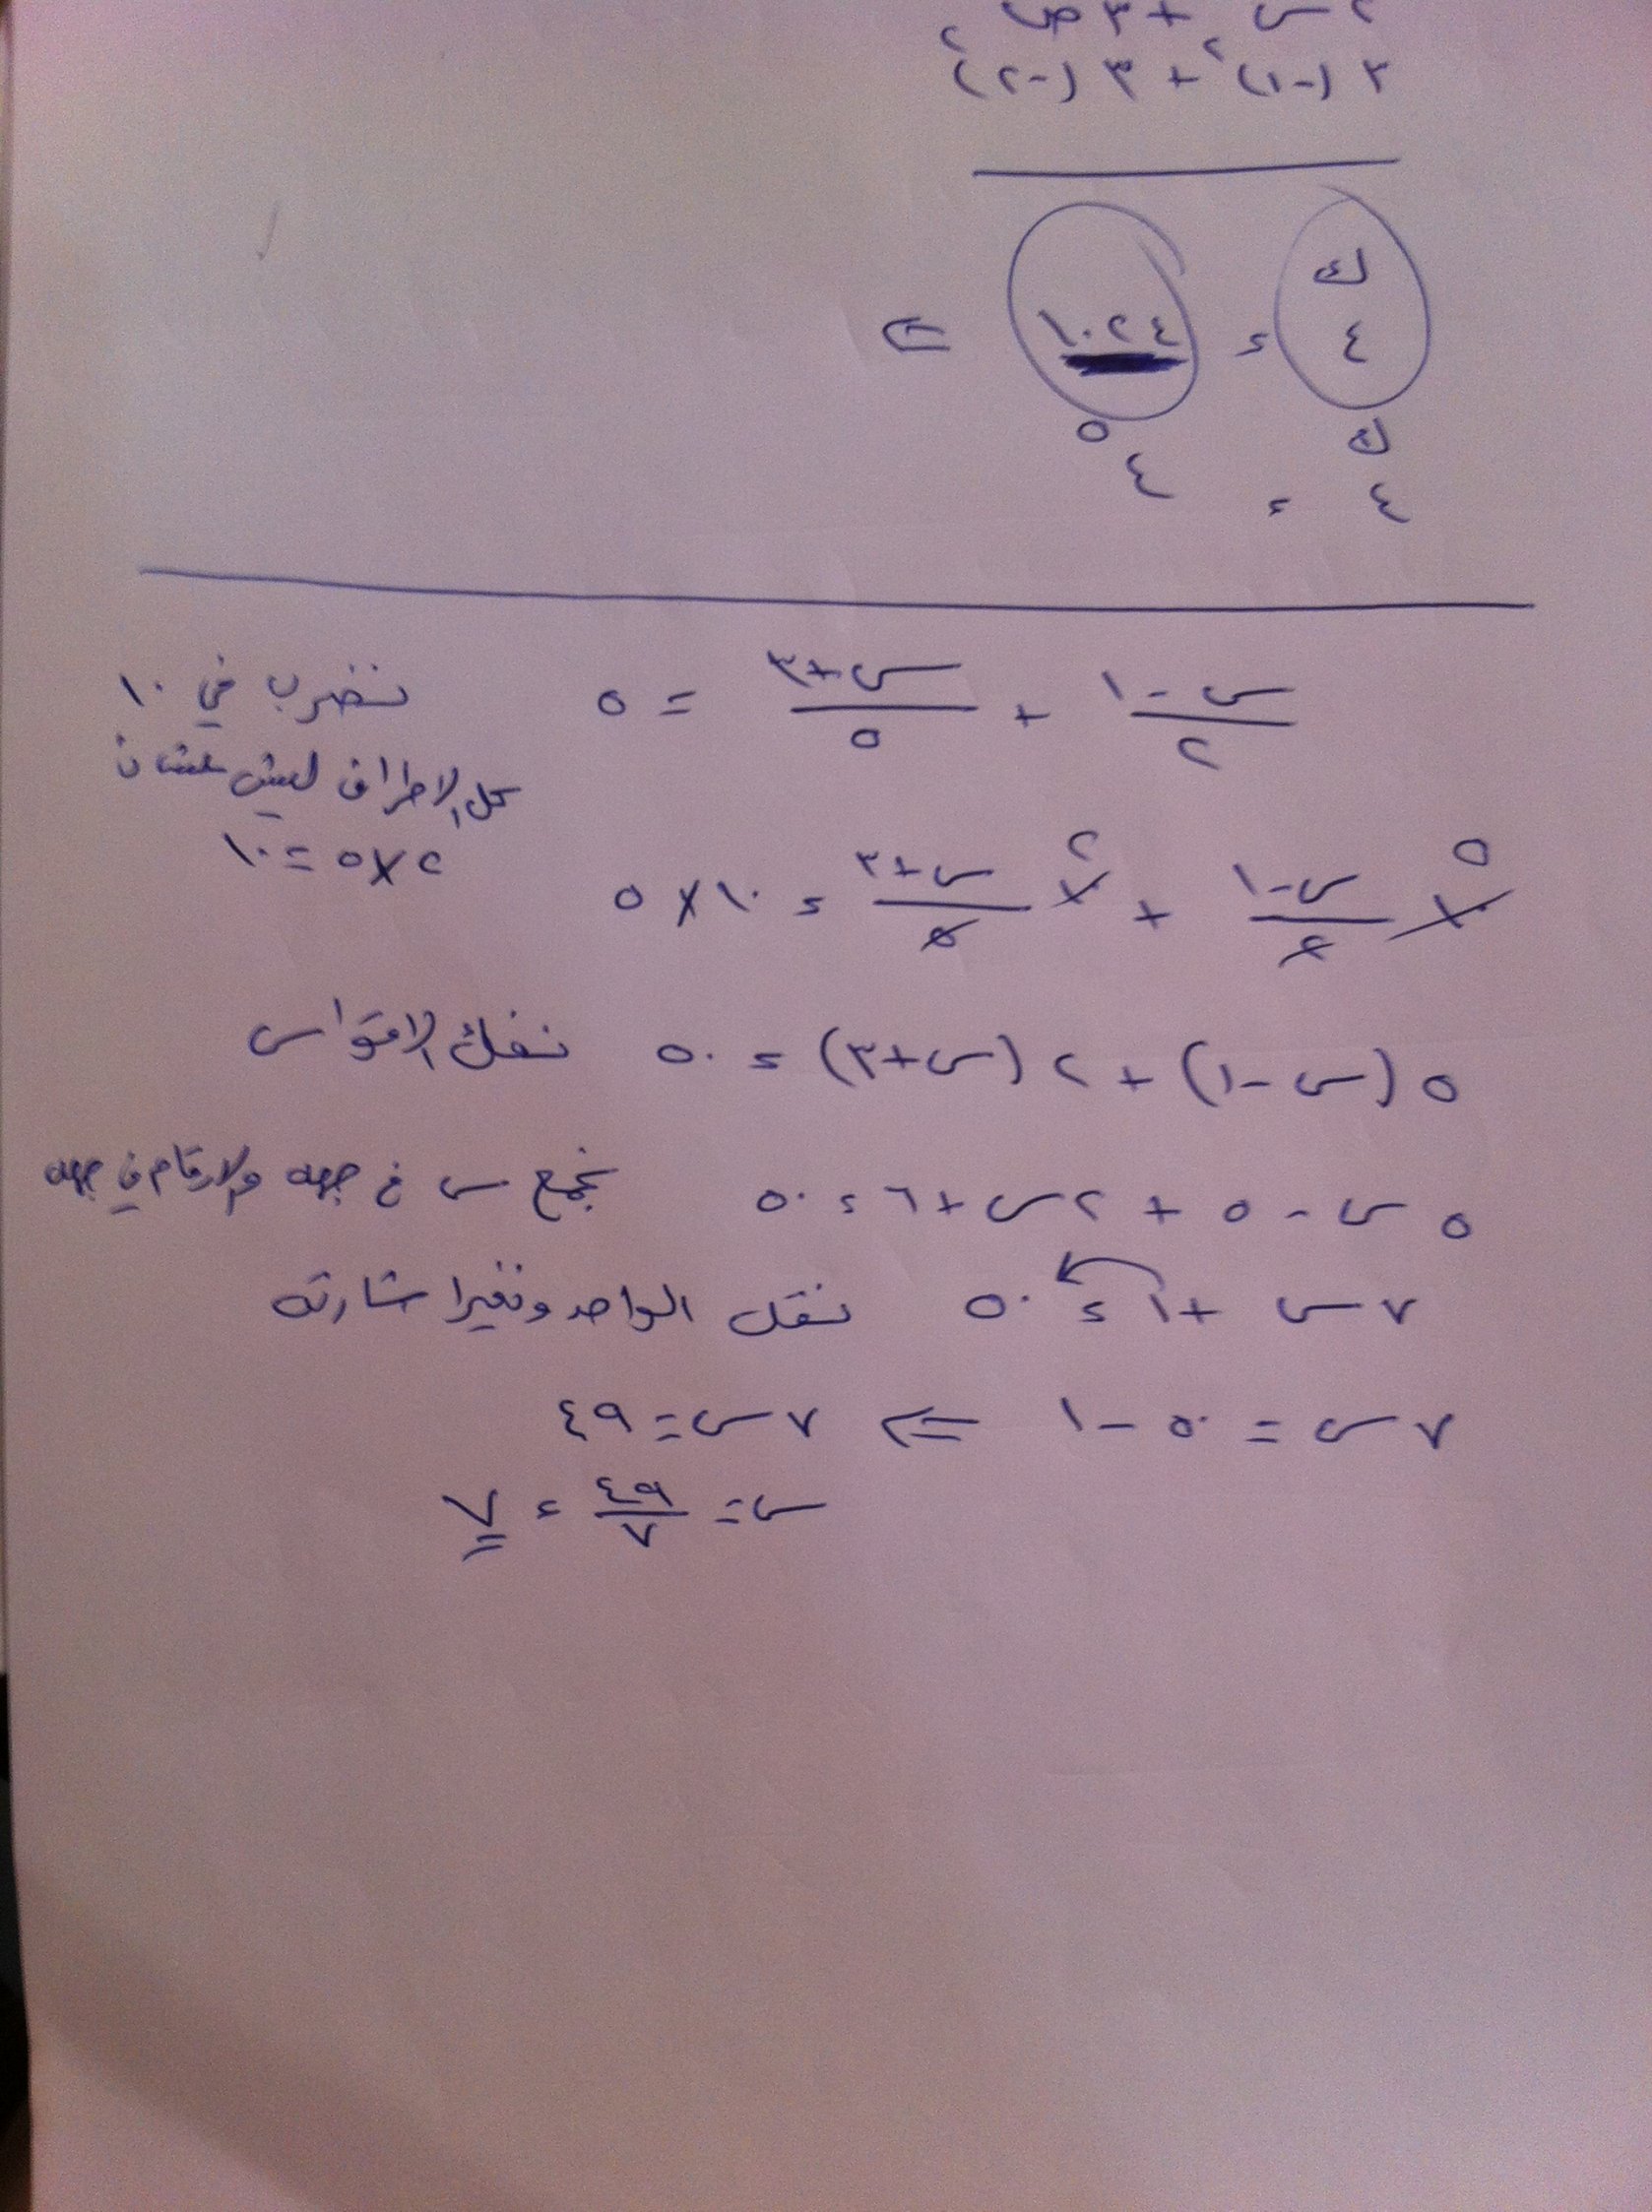 ٢س + ٣ص
٢(-١)٢ + ٣(-٢)٢
٤ك = ١٠٢٤ ⇐
٤ك = ٤٥
(س - ١)/٢ + (س+٣)/٥ = ٥ نضرب في ١٠
كل الاطراف ليش علشان
٢×٥=١٠
١٠ (س-١)/٢ + ١٠ (س+٣)/٥ = ١٠×٥
٥ ٢
٥(س-١) + ٢(س+٣) = ٥٠ نفك الاقواس
٥س - ٥ + ٢س + ٦ = ٥٠ نجمع س في جهه والارقام في جهه
٧س + ١ = ٥٠ ننقل الواحد ونغير اشارته
٧س = ٥٠ - ١ ⇐ ٧س = ٤٩
س = ٤٩/٧ = ٧